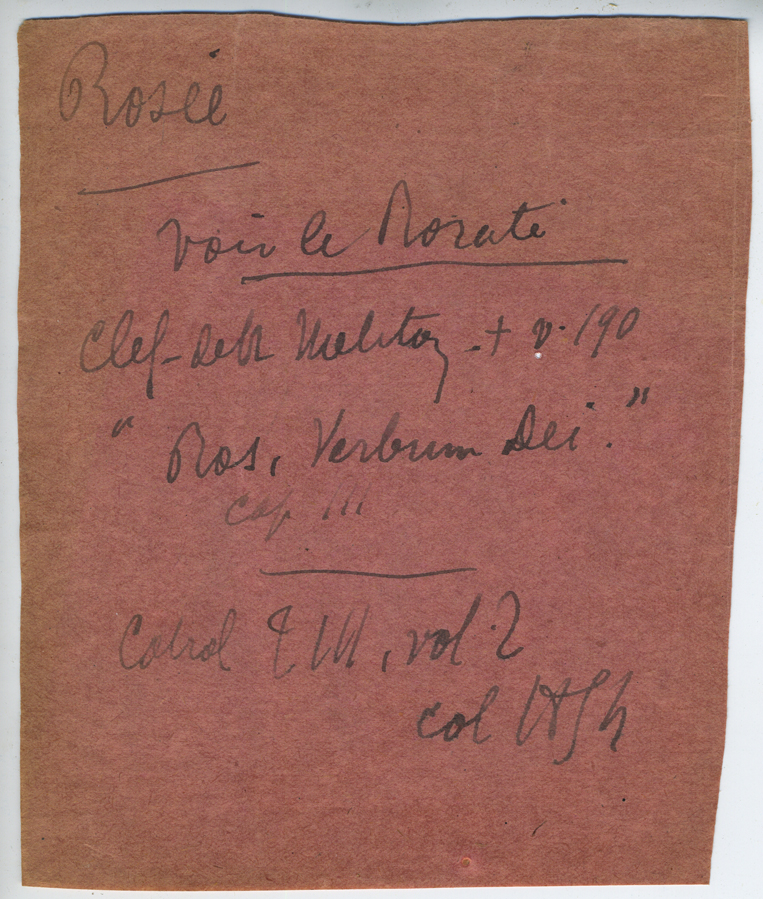 Rosée
voir le Rorate
Clef de St Meliton + v. 190
" Ros, Verbum Dei. "
Cap III
Cabrol T III, vol. 2
col